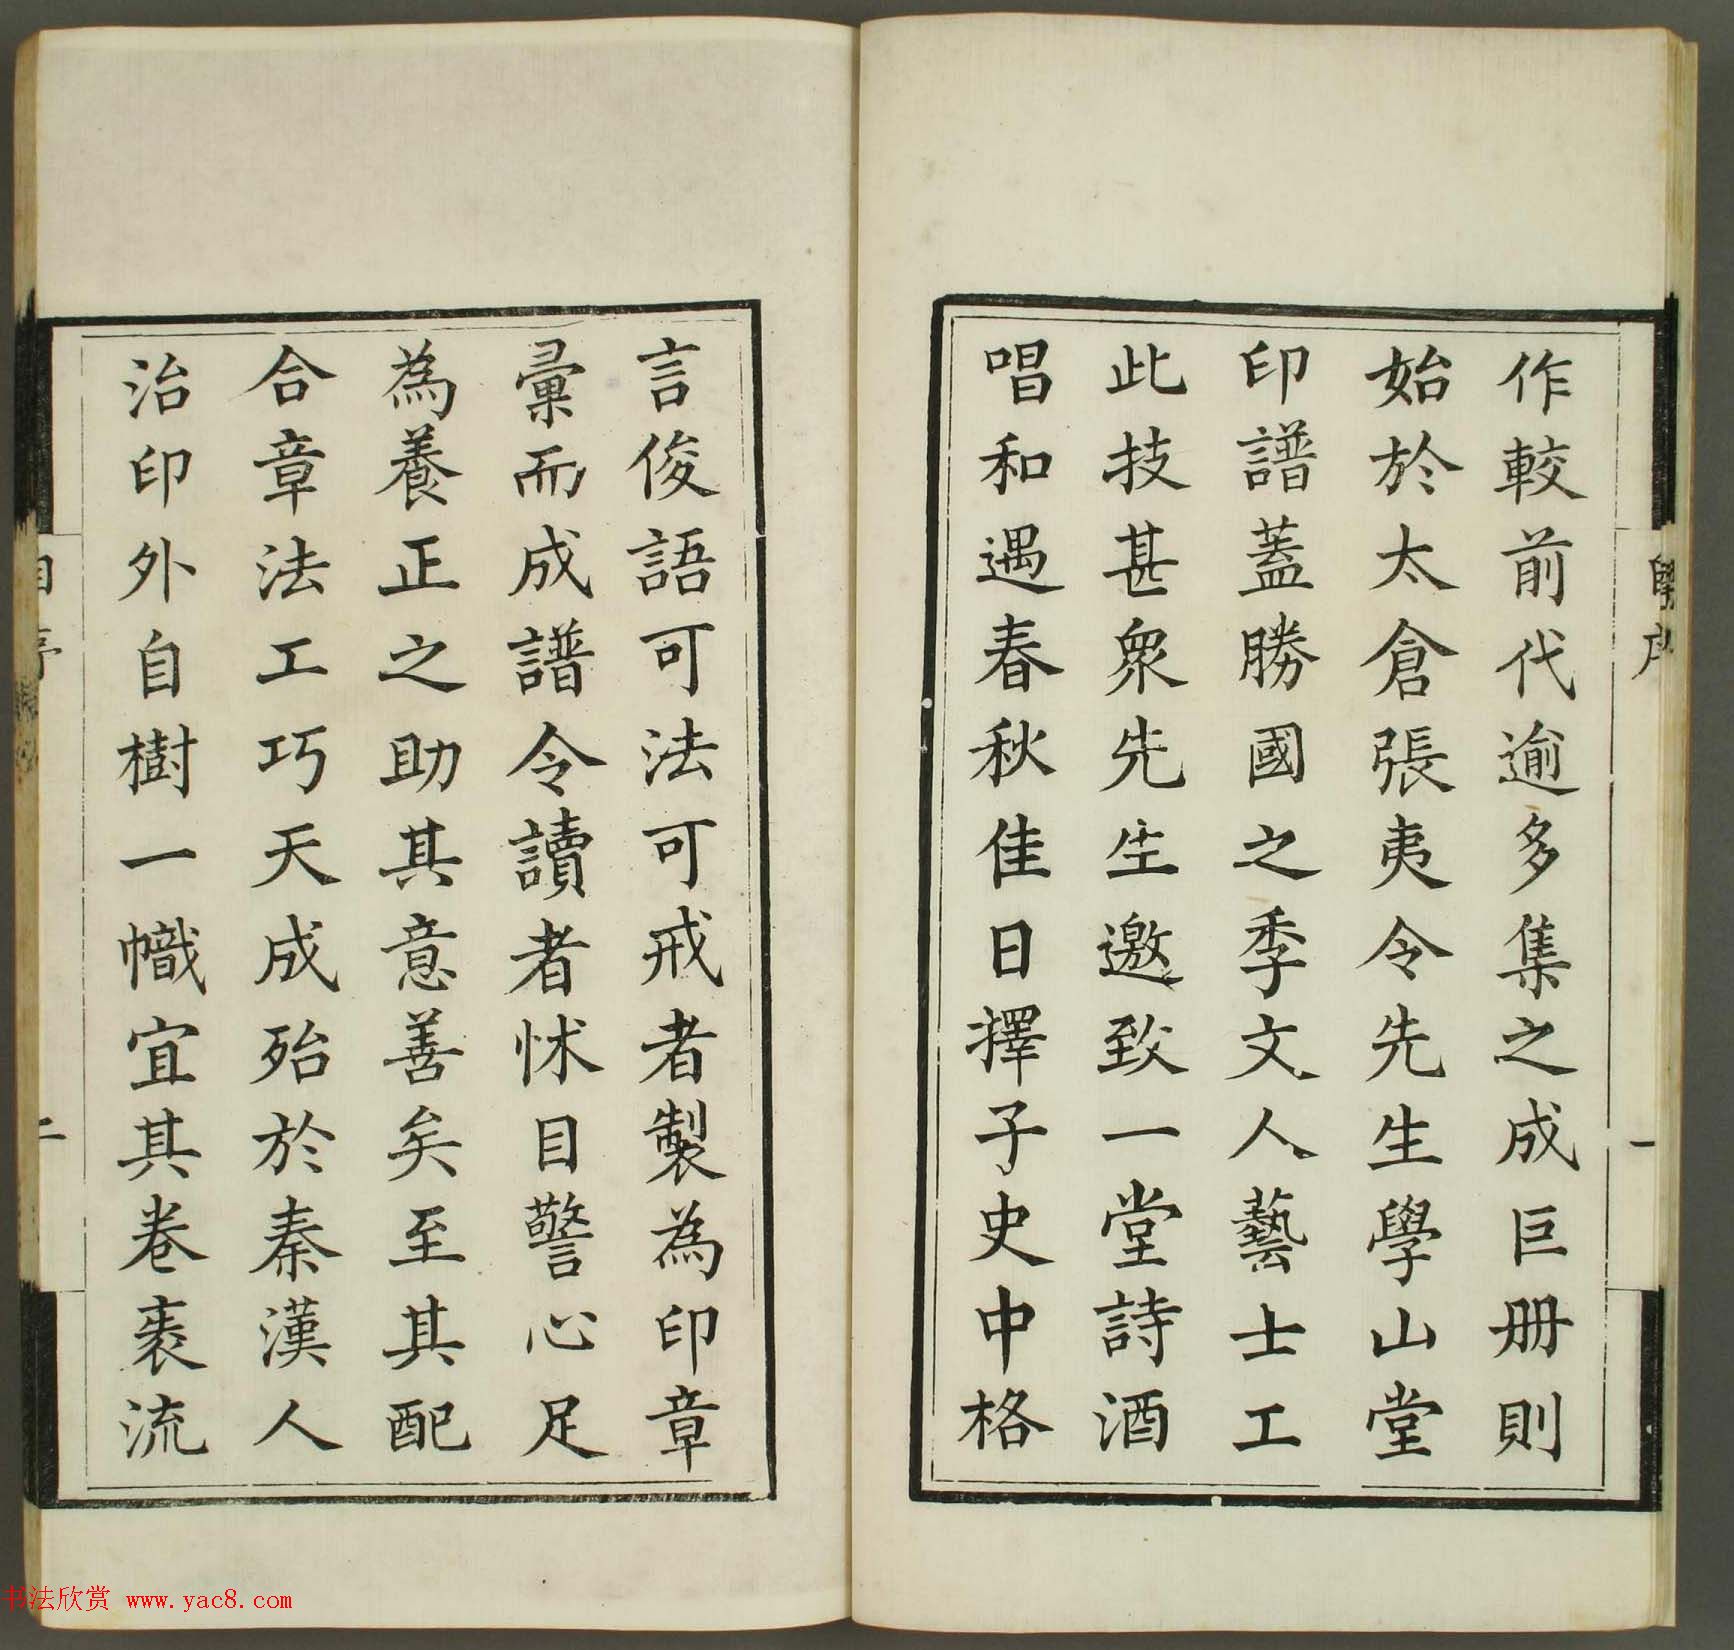 作較前代逾多集之成巨册則
始於太倉張夷令先生學山堂
印譜蓋勝國之季文人藝士工
此技甚衆先生邀致一堂詩酒
唱和遇春秋佳日擇子史中格
言俊語可法可戒者製為印章
彙而成譜令讀者怵目警心足
為養正之助其意善矣至其配
合章法工巧天成殆於秦漢人
治印外自樹一幟宜其卷袠流
自序
二
一
书法欣赏 www.yac8.com